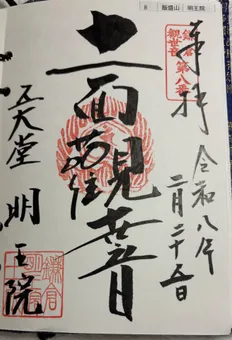 8 飯盛山 明王院
奉拝
鎌倉
観世音
第八番
令和八年
二月二十五日
十一面
観世音
五大堂
明王院
鎌倉
明王院